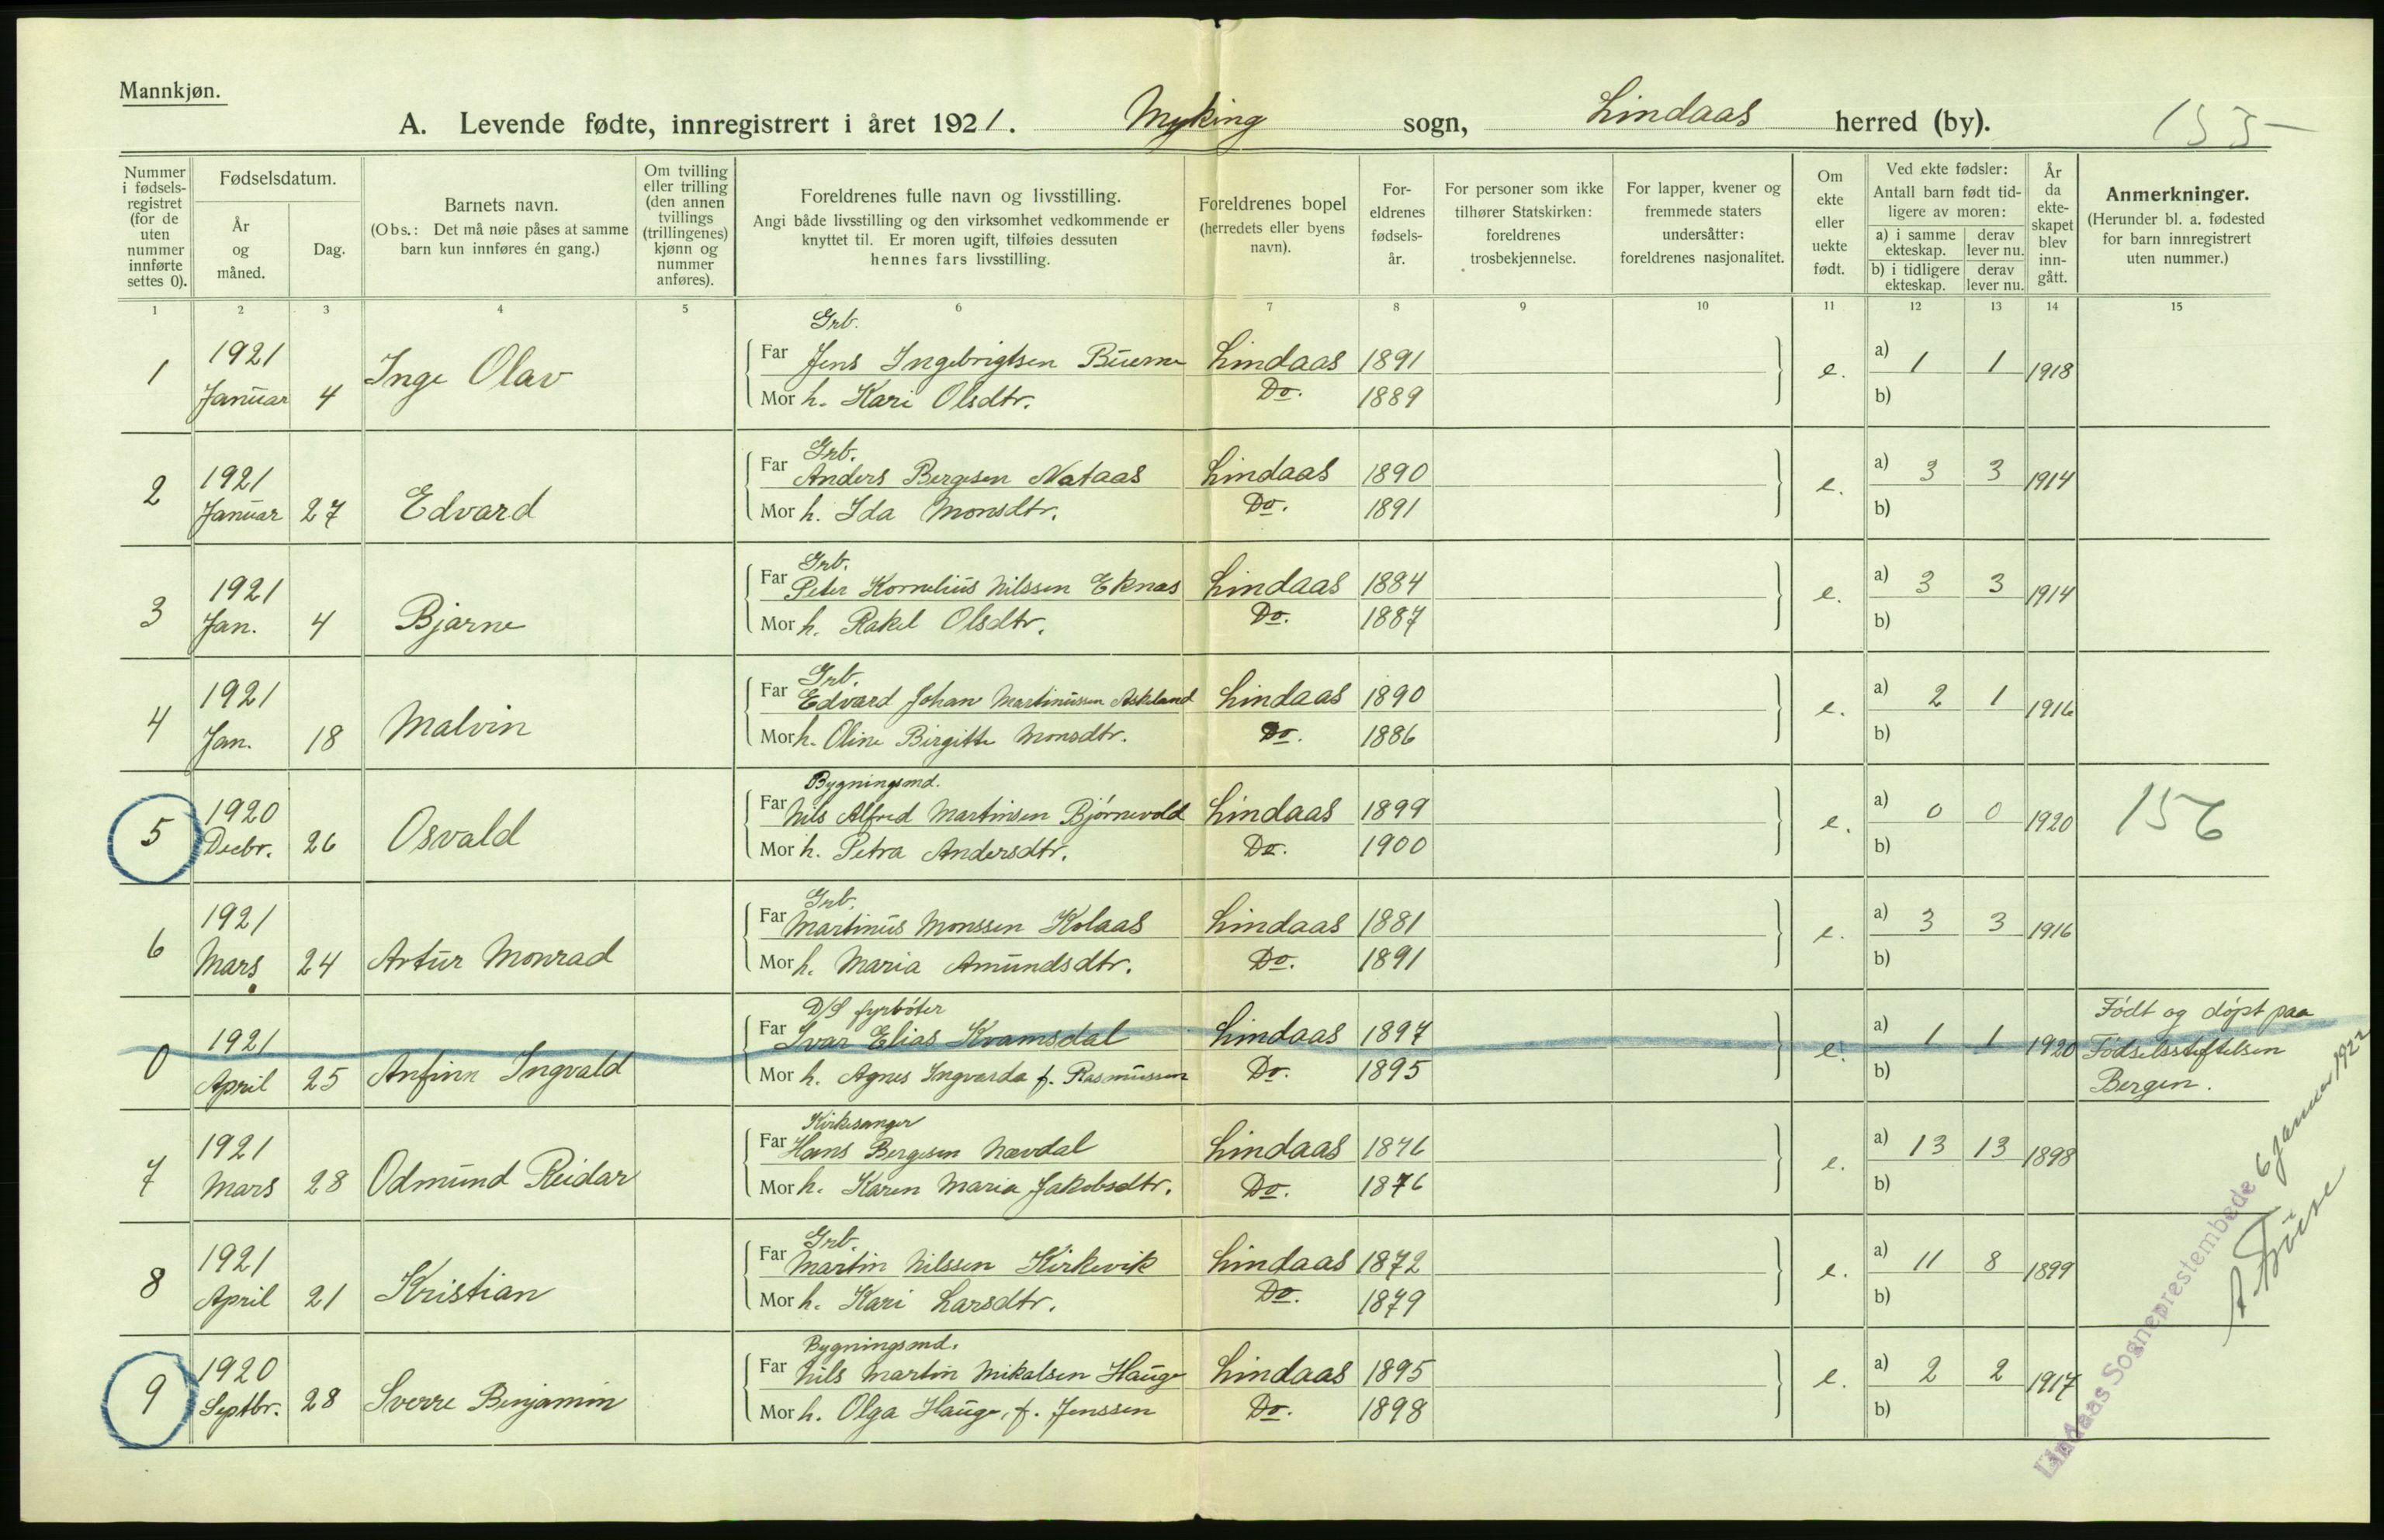 Mannkjøn.
A. Levende fødte, innregistrert i året 1921. Myking sogn, Lindaas herred (by). 155
Nummer i fødselsregistret (for de uten nummer innførte settes 0).
Fødselsdatum.
År og måned.
Dag.
Barnets navn.
(Obs.: Det må nøie påses at samme barn kun innføres én gang.)
Om tvilling eller trilling (den annen tvillings (trillingenes) kjønn og nummer anføres).
Foreldrenes fulle navn og livsstilling.
Angi både livsstilling og den virksomhet vedkommende er knyttet til. Er moren ugift, tilføies dessuten hennes fars livsstilling.
Foreldrenes bopel (herredets eller byens navn).
Foreldrenes fødselsår.
For personer som ikke tilhører Statskirken: foreldrenes trosbekjennelse.
For lapper, kvener og fremmede staters undersåtter: foreldrenes nasjonalitet.
Om ekte eller uekte født.
Ved ekte fødsler:
Antall barn født tidligere av moren:
a) i samme ekteskap. derav lever nu.
b) i tidligere ekteskap. derav lever nu.
År da ekteskapet blev inngått.
Anmerkninger.
(Herunder bl. a. fødested for barn innregistrert uten nummer.)
1 2 3 4 5 6 7 8 9 10 11 12 13 14 15
Grb.
1 1921 Januar 4 Inge Olav Far Jens Ingebrigtsen Lindaas 1891 e. a) 1 1 1918
Mor h. Kari Olsdtr. Do. 1889 b)
Grb.
2 1921 Januar 27 Edvard Far Anders Bergesen Nataas Lindaas 1890 e. a) 3 3 1914
Mor h. Ida Monsdtr. Do. 1891 b)
Grb.
3 1921 Jan. 4 Bjarne Far Peter Kornelius Nilssen Eknas Lindaas 1884 e. a) 3 3 1914
Mor h. Rakel Olsdtr. Do. 1887 b)
Grb.
4 1921 Jan. 18 Malvin Far Edvard Johan Martinusen Askeland Lindaas 1890 e. a) 2 1 1916
Mor h. Oline Birgitte Monsdtr. Do. 1886 b)
Bygningsmd.
5 1920 Decbr. 26 Osvald Far Nils Alfred Martinsen Bjørnevold Lindaas 1899 e. a) 0 0 1920 156
Mor h. Petra Andersdtr. Do. 1900 b)
Grb.
6 1921 Mars 24 Artur Monrad Far Martinus Monssen Kolaas Lindaas 1881 e. a) 3 3 1916
Mor h. Maria Amundsdtr. Do. 1891 b)
D/S fyrbøter
0 1921 April 25 Anfinn Ingvald Far Ivar Elias Kvamsdal Lindaas 1897 e. a) 1 1 1920 Født og døpt paa Fødselsstiftelsen Bergen.
Mor h. Agnes Ingvarda f. Rasmussen Do. 1895 b)
Kirkesanger
7 1921 Mars 28 Odmund Reidar Far Hans Bergesen Nævdal Lindaas 1876 e. a) 13 13 1898
Mor h. Karen Maria Jakobsdtr. Do. 1876 b)
Grb.
8 1921 April 21 Kristian Far Martin Nilssen Kirkevik Lindaas 1872 e. a) 11 8 1899
Mor h. Kari Larsdtr. Do. 1879 b)
Bygningsmd.
9 1920 Septbr. 28 Sverre Benjamin Far Nils Martin Mikalsen Hauge Lindaas 1895 e. a) 2 2 1917
Mor h. Olga Hauge, f. Jenssen Do. 1898 b)
Lindaas Sogneprestembede 6 januar 1922